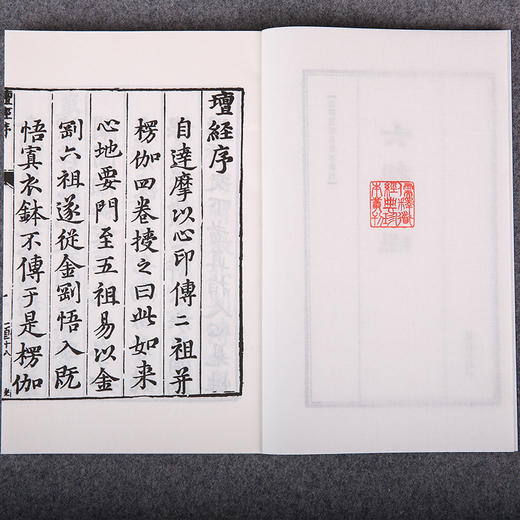 儒釋道
經典珍
本叢刊
壇經序
自達摩以心印傳二祖并
楞伽四卷授之曰此如来
心地要門至五祖易以金
剛六祖遂從金剛悟入既
悟寘衣鉢不傳于是楞伽
壇經序
一